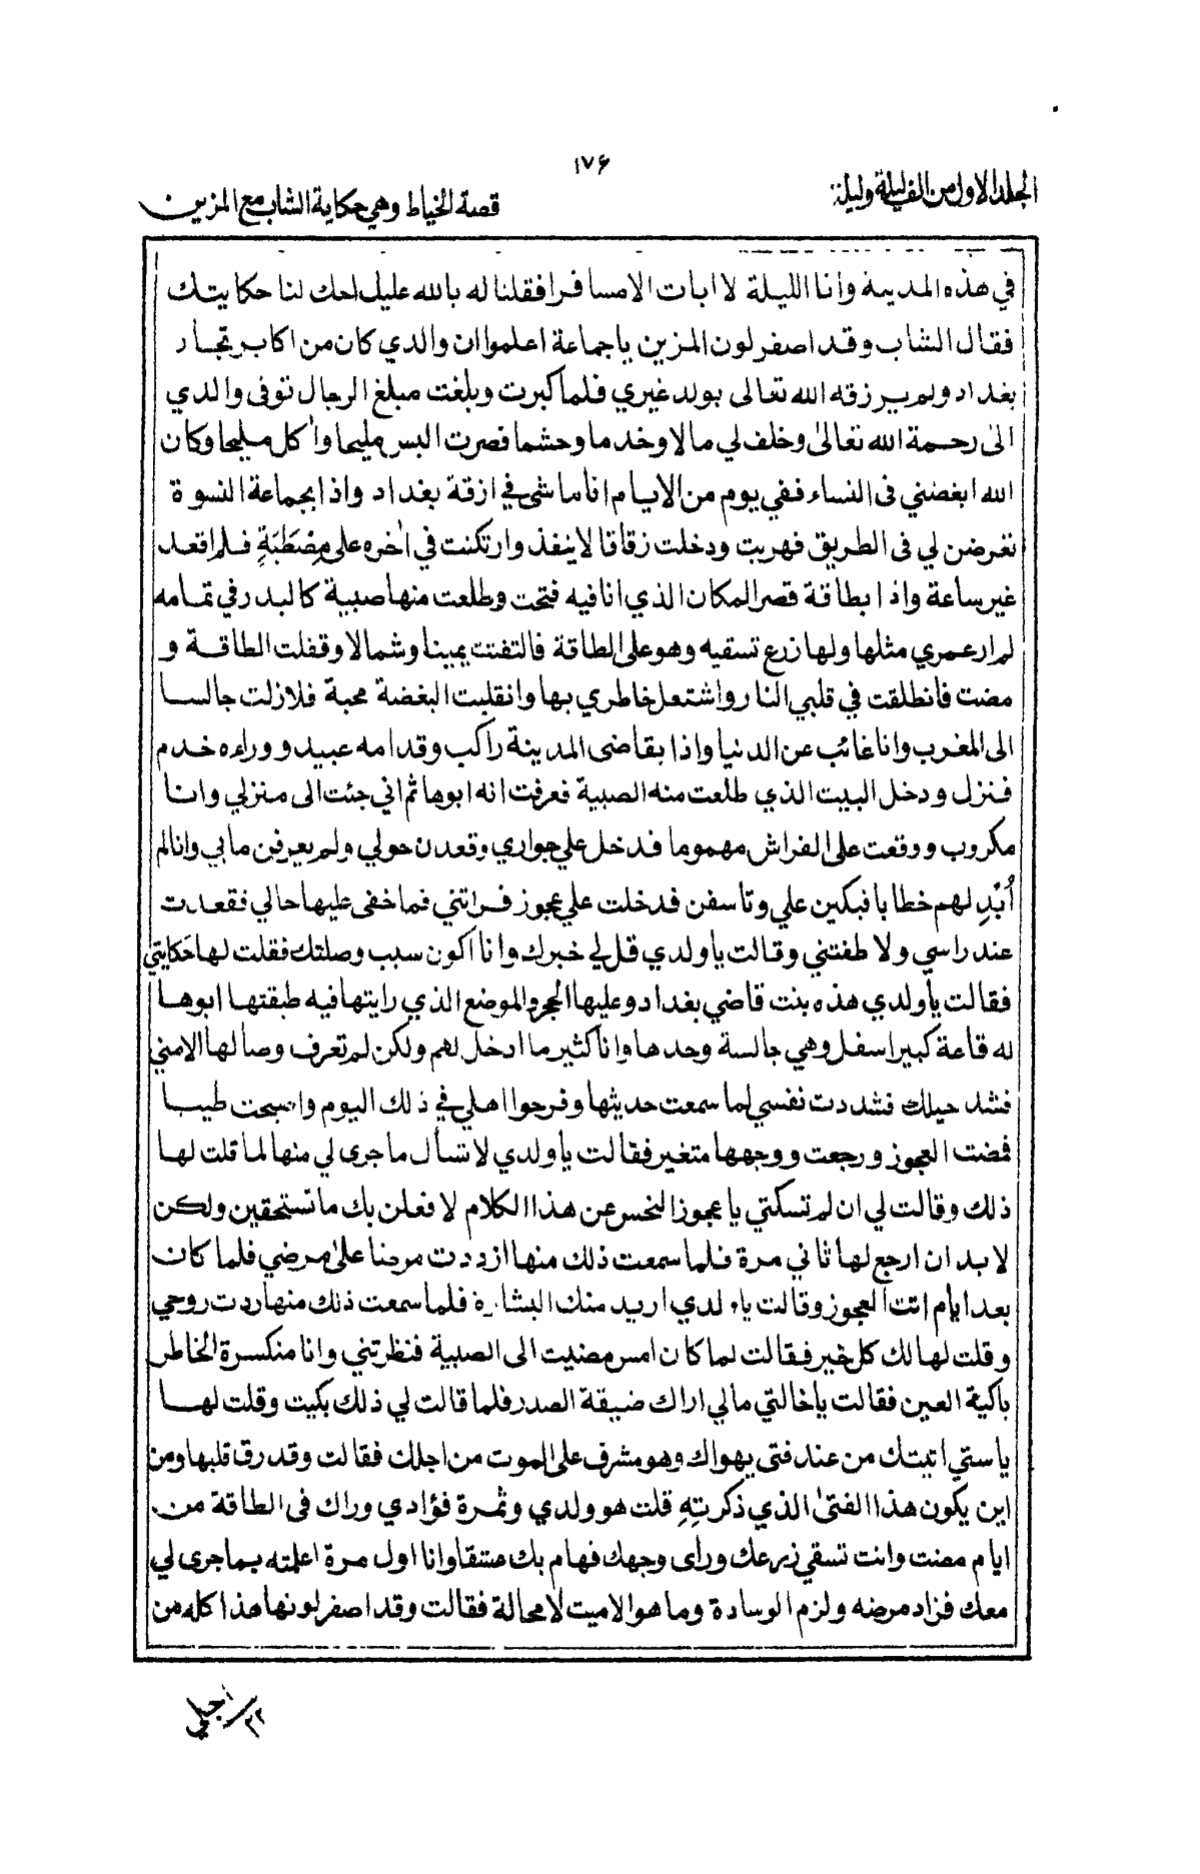 ١٧۶
الجلد الاول من الف ليلة وليلة
قصة الخياط وهي حكاية الشاب مع المزين
في هذه المدينة وانا الليلة لا ابات الا مسافرا فقلنا له بالله عليك احك لنا حكايتك
فقال الشاب وقد اصفر لون المزين يا جماعة اعلموا ان والدي كان من اكابر تجار
بغداد ولم يرزقه الله تعالى بولد غيري فلما كبرت وبلغت مبلغ الرجال توفى والدي
الىٰ رحمة الله تعالىٰ وخلف لي مالا وخدما وحشما فصرت البس مليحا واٰكل مليحا وكان
الله ابغضني فى النساء ففي يوم من الايام انا ماشى في ازقة بغداد واذا بجماعة النسوة
تعرضن لي فى الطريق فهربت ودخلت زقاقا لا ينفذ وارتكنت في اٰخره على مِصْطَبَةٍ فلم اقعد
غير ساعة واذا بطاقة قصر المكان الذي انا فيه فتحت وطلعت منها صبية كالبدر في تمامه
لم ار عمري مثلها ولها زرع تسقيه وهو على الطاقة فالتفتت يمينا وشمالا وقفلت الطاقة و
مضت فانطلقت في قلبي النار واشتعل خاطري بها وانقلبت البغضة محبة فلا زلت جالسا
الى المغرب وانا غائب عن الدنيا واذا بقاضى المدينة راكب وقدامه عبيد ووراءه خدم
فنزل ودخل البيت الذي طلعت منه الصبية فعرفت انه ابوها ثم اني جئت الى منزلي وانا
مكروب ووقعت على الفراش مهموما فدخل علي جواري وقعدن حولي ولم يعرفن ما بي وانا لم
اُبْدِ لهم خطابا فبكين علي وتاسفن فدخلت علي عجوز فراتني فما خفى عليها حالي فقعدت
عند راسي ولاطفتني وقالت يا ولدي قل لي خبرك وانا اكون سبب وصلتك فقلت لها حَكايتي
فقالت يا ولدي هذه بنت قاضي بغداد وعليها الحجر والموضع الذي رايتها فيه طبقتها ابوها
له قاعة كبير اسفل وهي جالسة وحدها وانا كثير ما ادخل لهم ولكن لم تعرف وصالها الا مني
فشد حيلك فشددت نفسي لما سمعت حديثها وفرحوا اهلي في ذلك اليوم واصبحت طيبا
فمضت العجوز ورجعت ووجهها متغير فقالت يا ولدي لا تسأل ما جرى لي منها لما قلت لها
ذلك وقالت لي ان لم تسكتي يا عجوز النحس عن هذا الكلام لافعلن بك ما تستحقين ولكن
لا بد ان ارجع لها ثاني مرة فلما سمعت ذلك منها ازددت مرضا علىٰ مرضي فلما كان
بعد ايام اتت العجوز وقالت يا ولدي اريد منك البشارة فلما سمعت ذلك منها ردت روحي
وقلت لها لك كل خير فقالت لما كان امس مضيت الى الصبية فنظرتني وانا منكسرة الخاطر
باكية العين فقالت يا خالتي مالي اراك ضيقة الصدر فلما قالت لي ذلك بكيت وقلت لها
يا ستي اتيتك من عند فتى يهواك وهو مشرف على الموت من اجلك فقالت وقد رق قلبها ومن
اين يكون هذا الفتىٰ الذي ذكرتِهِ قلت هو ولدي وثمرة فؤادي وراك فى الطاقة من
ايام مضت وانت تسقي زرعك وراى وجهك فهام بك عشقا وانا اول مرة اعلمته بما جرى لي
معك فزاد مرضه ولزم الوسادة وما هو الا ميت لا محالة فقالت وقد اصفر لونها هذا كله من
اجلي